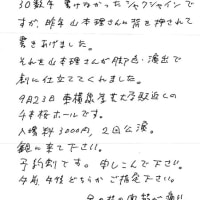 30数年 書けなかったシャクシャインで
すが、昨年 山本理さんに背を押されて
書きあげました。
それを山本理さんが脚色・演出で
劇に仕立ててくれました。
9月23日 東横線学芸大学駅近くの
千本桜ホールです。
入場料3000円、2回公演。
観に来て下さい。
予約制です。申しこんで下さい。
午前 午後どちらかご指定下さい。